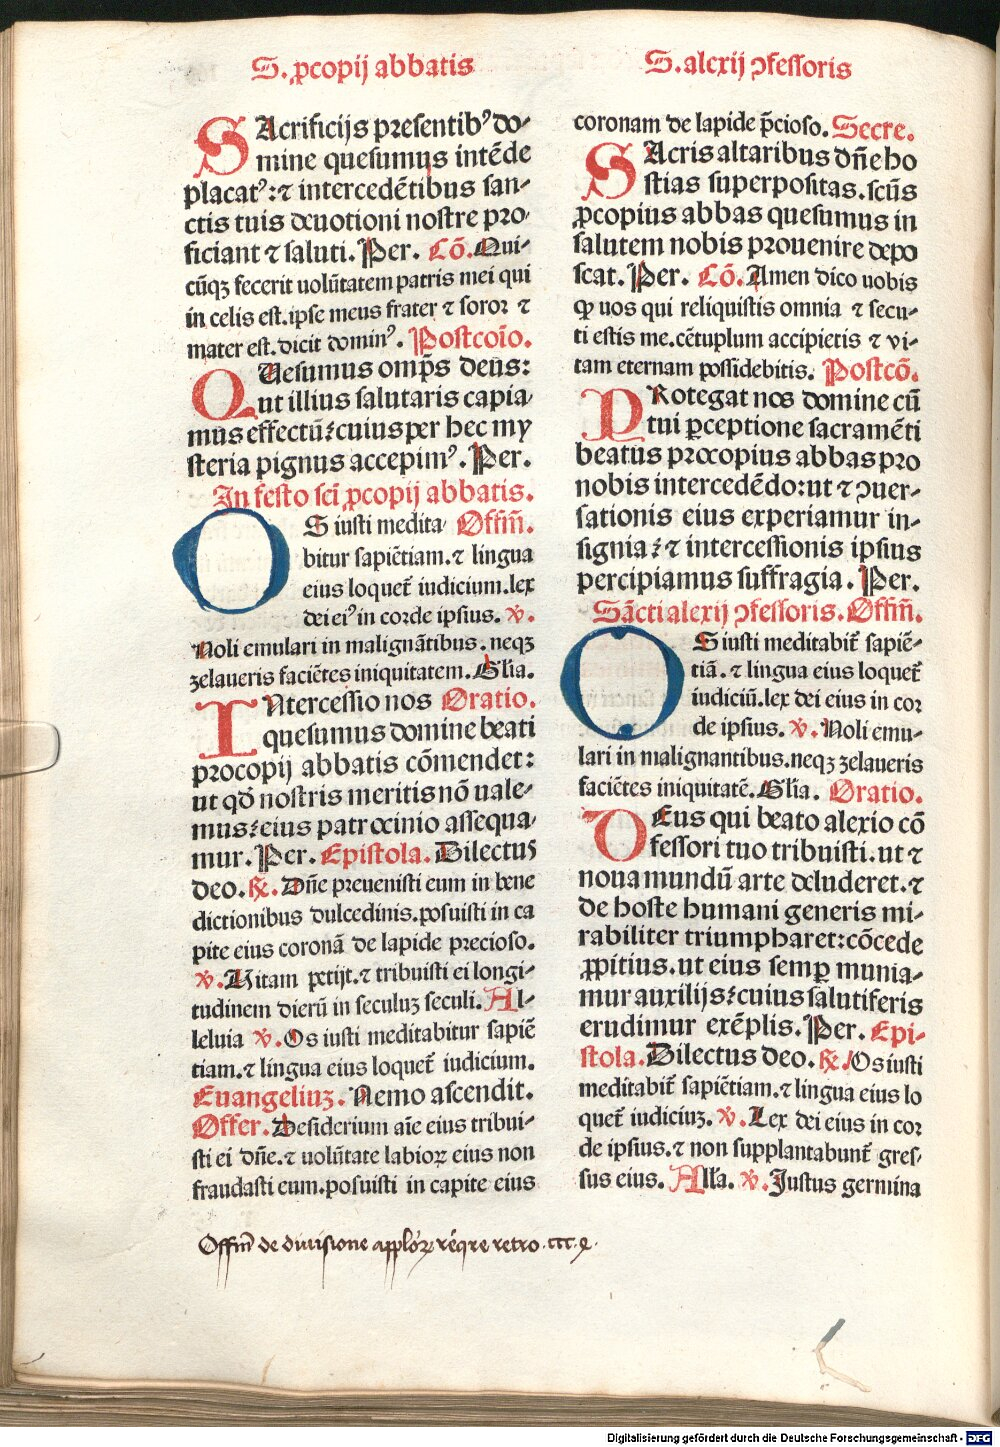 S. ꝓcopij abbatis
S. alexij ↄfessoris
SAcrificijs presentibꝰ do-
mine quesumus intēde
placatꝰ: ⁊ intercedētibus san-
ctis tuis deuotioni nostre pro-
ficiant ⁊ saluti. Per. Cō. Qui-
cūqꝫ fecerit uolūtatem patris mei qui
in celis est. ipse meus frater ⁊ soror ⁊
mater est. dicit dominꝰ. Postcoīo.
QUesumus omp̄s deus:
ut illius salutaris capia-
mus effectū: cuius per hec my
steria pignus accepimꝰ. Per.
In festo sci ꝓcopij abbatis.
OS iusti medita- Offm̄.
bitur sapiētiam. ⁊ lingua
eius loquet̄ iudicium. lex
dei eiꝰ in corde ipsius. ℣.
Noli emulari in malignātibus. neqꝫ
zelaueris faciētes iniquitatem. Gl̄ia.
INtercessio nos Oratio.
quesumus domine beati
procopij abbatis cōmendet:
ut qd̄ nostris meritis nō uale-
mus: eius patrocinio assequa-
mur. Per. Epistola. Dilectus
deo. ℟. Dn̄e preuenisti eum in bene
dictionibus dulcedinis. posuisti in ca
pite eius coronā de lapide precioso.
℣. Uitam petijt. ⁊ tribuisti ei longi-
tudinem dierū in seculuꝫ seculi. Al-
leluia ℣. Os iusti meditabitur sapiē
tiam. ⁊ lingua eius loquet̄ iudicium.
Euangeliuꝫ. Nemo ascendit.
Offer. Desiderium aīe eius tribui-
sti ei dn̄e. ⁊ uolūtate labioꝝ eius non
fraudasti eum. posuisti in capite eius
coronam de lapide p̄cioso. Secre.
SAcris altaribus dn̄e ho
stias superpositas. scūs
ꝓcopius abbas quesumus in
salutem nobis prouenire depo
scat. Per. Cō. Amen dico uobis
ꝙ uos qui reliquistis omnia ⁊ secu-
ti estis me. cētuplum accipietis ⁊ vi-
tam eternam possidebitis. Postcō.
PRotegat nos domine cū
tui ꝑceptione sacramēti
beatus procopius abbas pro
nobis intercedēdo: ut ⁊ ↄuer-
sationis eius experiamur in-
signia: ⁊ intercessionis ipsius
percipiamus suffragia. Per.
Sācti alexij ↄfessoris. Offm̄.
OS iusti meditabit̄ sapiē-
tiā. ⁊ lingua eius loquet̄
iudiciū. lex dei eius in cor
de ipsius. ℣. Noli emu-
lari in malignantibus. neqꝫ zelaueris
faciētes iniquitatē. Gl̄ia. Oratio.
DEus qui beato alexio cō
fessori tuo tribuisti. ut ⁊
noua mundū arte deluderet. ⁊
de hoste humani generis mi-
rabiliter triumpharet: cōcede
ꝓpitius. ut eius semꝑ munia-
mur auxilijs: cuius salutiferis
erudimur exēplis. Per. Epi-
stola. Dilectus deo. ℟. Os iusti
meditabit̄ sapiētiam. ⁊ lingua eius lo
quet̄ iudiciuꝫ. ℣. Lex dei eius in cor
de ipsius. ⁊ non supplantabunt̄ gres-
sus eius. All̄a. ℣. Justus germina
Offm̄ de diuisione apl̄oꝝ reꝗre retro
Digitalisierung gefördert durch die Deutsche Forschungsgemeinschaft - DFG